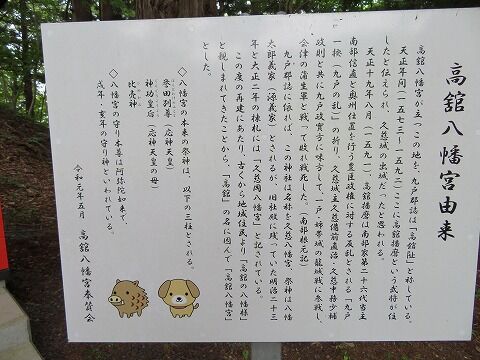 高舘八幡宮由来
高舘八幡宮が立つこの地を、九戸郡誌は「高舘趾」と称している。
天正年間(一五七三~一五九二)ここに高舘播磨という武将が住
したと伝えられ、久慈城の出城だったと思われる。
天正十九年八月(一五九一)、高舘播磨は南部家第二十六代当主
南部信直と奥州仕置を行う豊臣政権に対する反乱とされる「九戸
一揆(九戸の乱)」の折り、久慈城主久慈備前直治・久慈中務少輔
政則と共に九戸政実方に味方して、一戸・姉帯城の籠城戦に参戦し、
会津の蒲生軍と戦って敗れ戦死した。(南部根元記)
九戸郡誌に依れば、この神社は名称を久慈八幡宮、祭神は八幡
太郎義家(源義家)とされるが、旧社殿に残っていた明治二十三
年と大正二年の棟札には「久慈岡八幡宮」と記されている。
この度の再建にあたり、古くから地域住民より「高舘の八幡様」
と親しまれてきたことから、「高舘」の名に因んで「高舘八幡宮」
とした。
◇八幡宮の本来の祭神は、以下の三柱とされる。
誉田別尊(応神天皇)
神功皇后(応神天皇の母)
比売神
◇八幡宮の守り本尊は阿弥陀如来で、
戌年・亥年の守り神といわれている。
令和元年五月 高舘八幡宮奉賛会